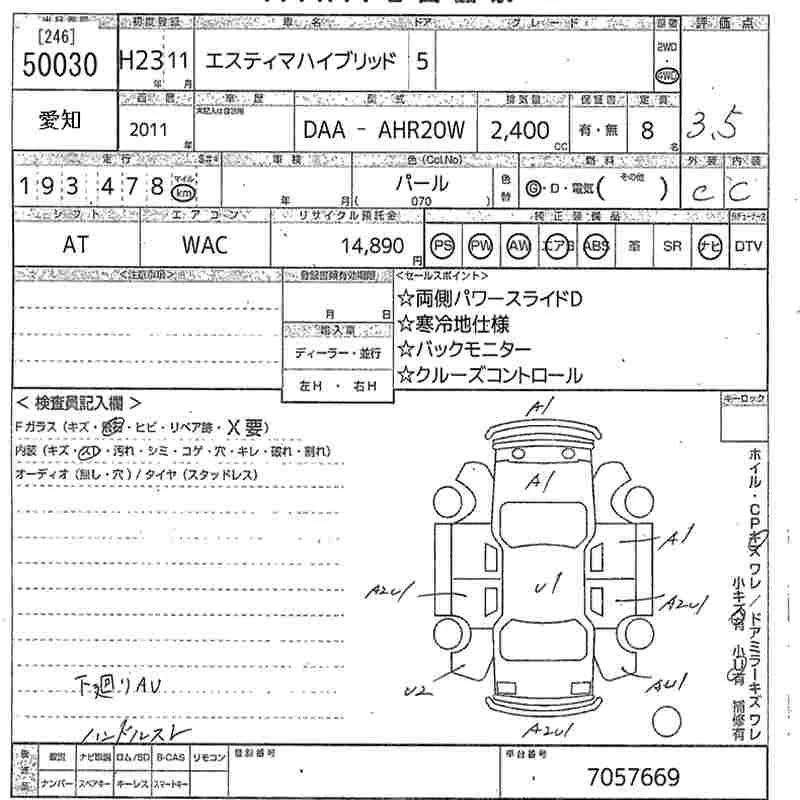 初度登録 車名 ドア グレード 評価点
[246]
50030 H23 11 エスティマハイブリッド 5 2WD・4WD
年 月
愛知 車歴 型式 排気量 保証書 定員
2011年 DAA - AHR20W 2,400cc 有・無 8名 3.5
走行 車検 色(Col.No) 燃料 外装 内装
193478 マイル km 年 月 パール (070) 色替 G・D・電気(その他) C C
シフト エアコン リサイクル預託金 純正装備品
AT WAC 14,890円 PS PW AW エアB ABS 革 SR ナビ DTV
<注意事項> 登録書類有効期限 <セールスポイント>
月 日
☆両側パワースライドD
輸入車 ☆寒冷地仕様
ディーラー・並行 ☆バックモニター
左H・右H ☆クルーズコントロール
<検査員記入欄> キーロック
Fガラス(キズ・ ・ヒビ・リペア跡・X要)
内装(キズ・スレ・汚れ・シミ・コゲ・穴・キレ・破れ・割れ)
オーディオ(無し・穴)/タイヤ(スタッドレス)
A1
A1
A1
A2U1 U1 A2U1
U2 AU1
A2U1
ホイル・CPキズ ワレ/ドアミラーキズ ワレ
小キズ有 小U有 補修有
下廻りAU
ハンドルスレ
取説 ナビ取説 ロム/SD B-CAS リモコン 登録番号 車台番号
ナンバー スペアキー キーレス スマートキー 7057669